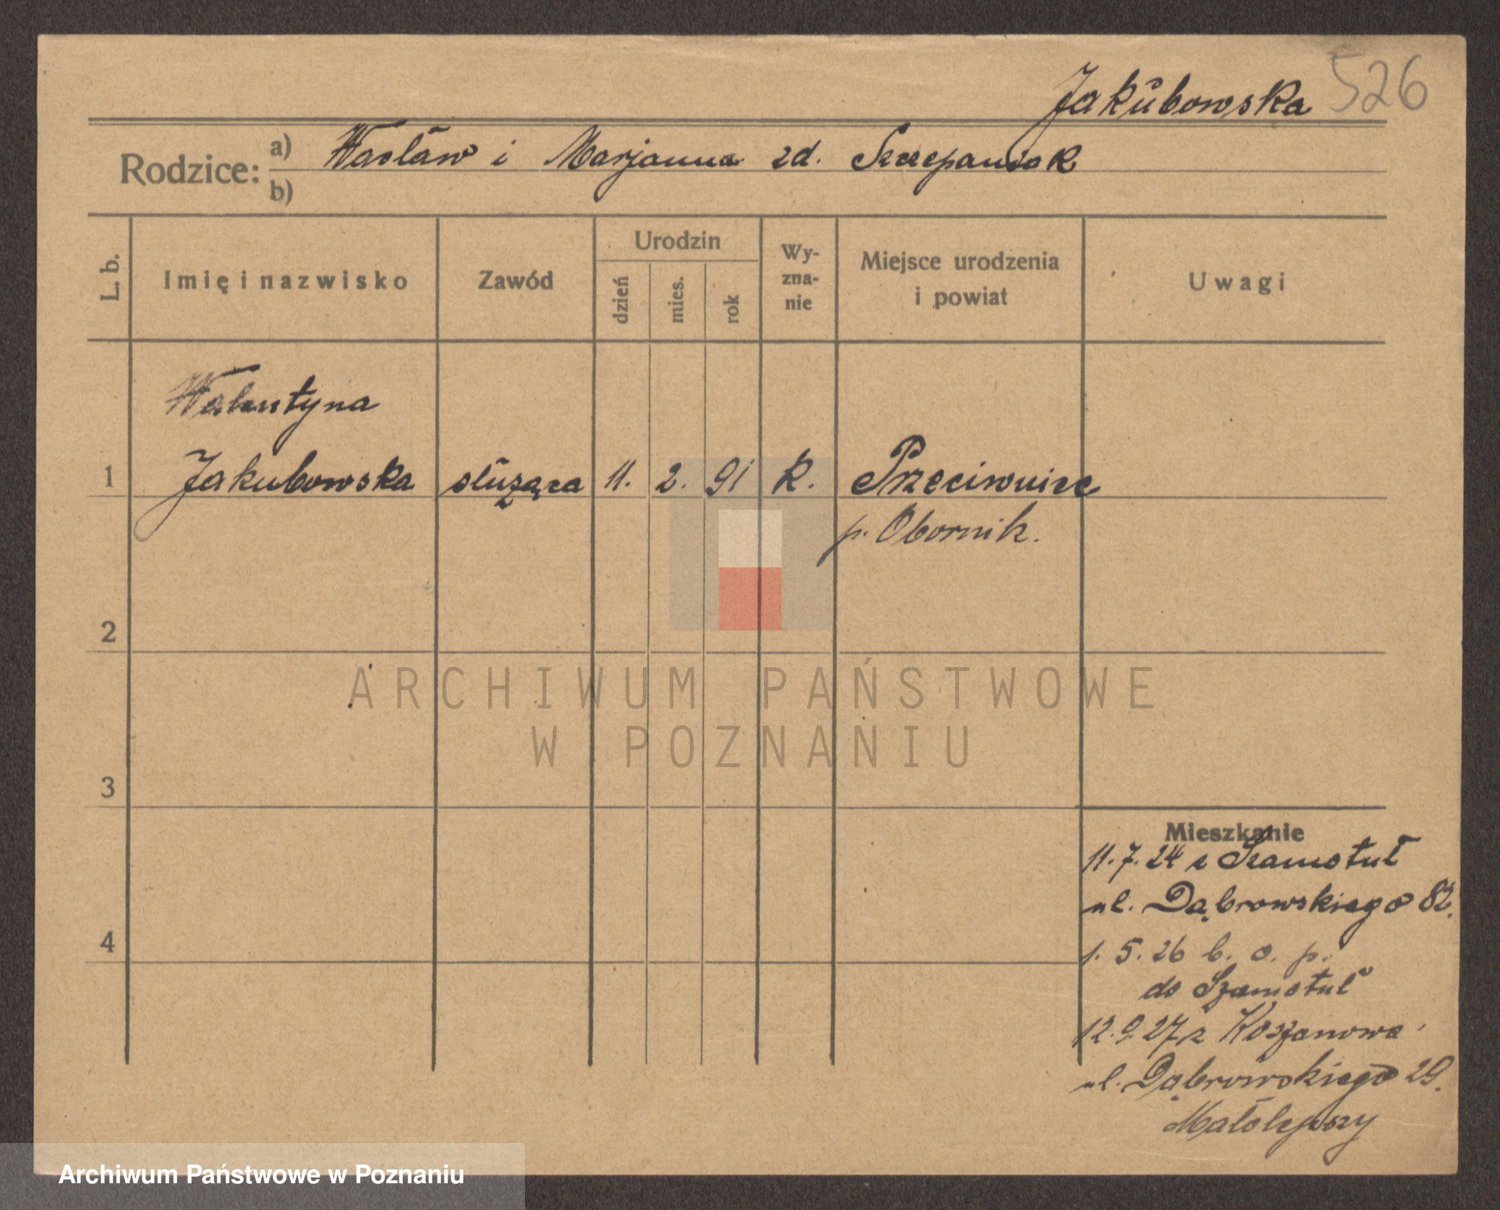 Jakubowska 526
Rodzice: a) Wacław i Marjanna zd. Szczepaniak
b)
L. b.
Imię i nazwisko
Zawód
Urodzin
dzień
mies.
rok
Wy-
zna-
nie
Miejsce urodzenia
i powiat
Uwagi
Walentyna
1 Jakubowska służąca 11. 2. 91 k. Przeciwnice
p. Obornik.
2
3
4
Mieszkanie
11.7.24 z Szamotuł
ul. Dąbrowskiego 82.
1. 5. 26 b. o. p.
do Szamotuł
12.9.27 z Koszanowa
ul. Dąbrowskiego 29.
Małolepszy
ARCHIWUM PAŃSTWOWE
W POZNANIU
Archiwum Państwowe w Poznaniu